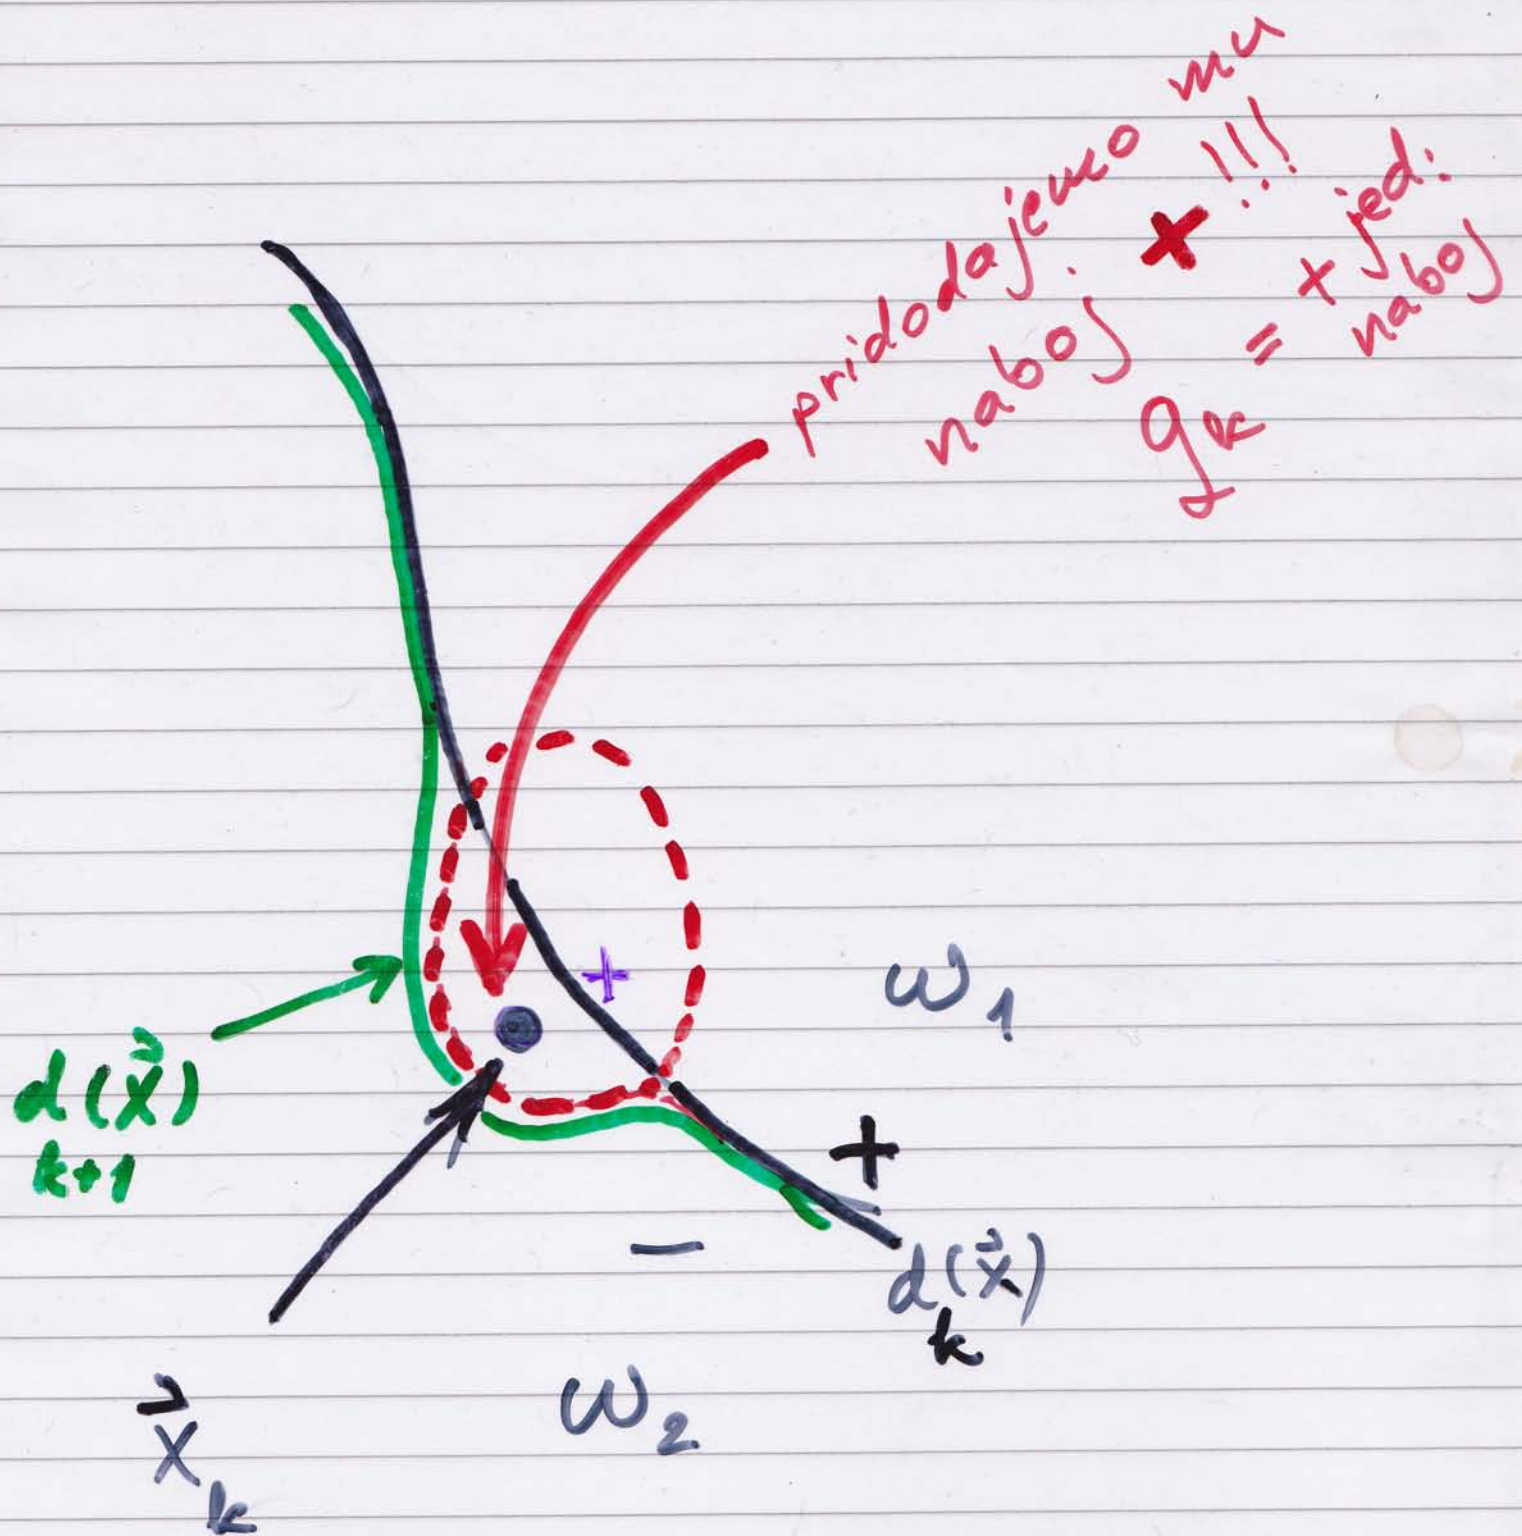 pridodajemo mu
naboj + !!!
q_k = + jed.
naboj
+
ω₁
d(x⃗)
k+1
+
−
d(x⃗)
k
ω₂
x⃗
k